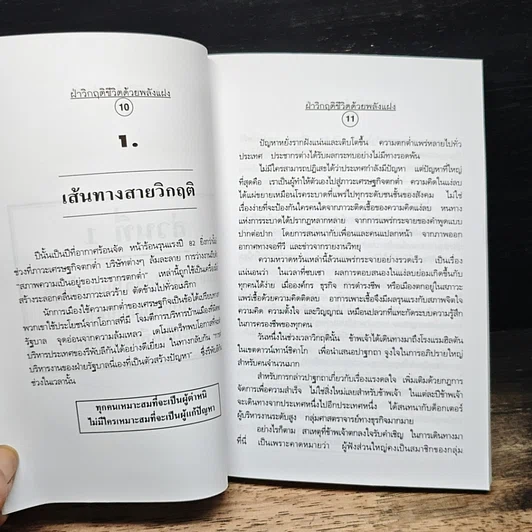 ฝ่าวิกฤติชีวิตด้วยพลังแฝง
10
1.
เส้นทางสายวิกฤติ
ปีนั้นเป็นปีที่อากาศร้อนจัด หน้าร้อนรุนแรงปี 82 ยิ่งกว่านั้น
ช่วงที่ภาวะเศรษฐกิจตกต่ำ บริษัทต่างๆ ล้มละลาย การว่างงานใน
"สภาพความเป็นอยู่ของประชากรตกต่ำ" เหล่านี้ถูกใช้เป็นเครื่องมือ
สร้างระลอกคลื่นของภาวะเลวร้าย ตัดข้ามไปทั่วอเมริกา
นักการเมืองใช้ความตกต่ำของเศรษฐกิจเป็นข้อได้เปรียบ
พวกเขาใช้ประโยชน์จากโอกาสที่มี โจมตีการบริหารบ้านเมือง
รัฐบาล จุดอ่อนจากความล้มเหลว เดโมแครตพบโอกาส
บริหารประเทศของรีพับลิกันได้อย่างดีเยี่ยม ในทางกลับกัน
บริหารงานของฝ่ายรัฐบาลนี่เองที่เป็นตัวสร้างปัญหา" ซึ่งรีพับลิกัน
ช่วงในเวลานั้น
ทุกคนเหมาะสมที่จะเป็นผู้ตำหนิ
ไม่มีใครเหมาะสมที่จะเป็นผู้แก้ปัญหา
ฝ่าวิกฤติชีวิตด้วยพลังแฝง
11
ปัญหาหยั่งรากฝังแน่นและเติบโตขึ้น ความตกต่ำแพร่หลายไปทั่ว
ประเทศ ประชากรต่างได้รับผลกระทบอย่างไม่มีทางรอดพ้น
ไม่มีใครสามารถปฏิเสธได้ว่าประเทศกำลังมีปัญหา แต่ปัญหาที่ใหญ่
ที่สุดคือ เราเป็นผู้ทำให้ตัวเองไปสู่ภาวะเศรษฐกิจตกต่ำ ความคิดในแง่ลบ
ได้แผ่ขยายเหมือนโรคระบาดที่แพร่ไปทุกระดับชนชั้นของสังคม ไม่ใช่
เรื่องง่ายที่จะป้องกันใครคนใดจากภาวะติดเชื้อของความคิดแง่ลบ หนทาง
แห่งการระบาดได้ปรากฏหลากหลาย จากการแพร่กระจายของคำพูดแบบ
ปากต่อปาก โดยการสนทนากับเพื่อนและคนแปลกหน้า จากภาพออก
อากาศทางจอทีวี และข่าวสารจากรายงานวิทยุ
ความหวาดหวั่นเหล่านี้ล้วนแพร่กระจายอย่างรวดเร็ว เป็นเรื่อง
แน่นอนว่า ในเวลาที่ซบเซา ผลการตอบสนองในแง่ลบย่อมเกิดขึ้นกับ
ทุกคนได้ง่าย เมื่อองค์กร ธุรกิจ การดำรงชีพ หรือเมืองตกอยู่ในสภาวะ
แพร่เชื้อด้วยความคิดติดลบ อาการเพาะเชื้อจึงมีผลรุนแรงกับสภาพจิตใจ
ความคิด ความตั้งใจ และวิญญาณ เหมือนปลวกที่แทะกัดระบบความรู้สึก
ในการครองชีพของทุกคน
วันหนึ่งในช่วงเวลาวิกฤตินั้น ข้าพเจ้าได้เดินทางมาถึงโรงแรมฮิลตัน
ในเขตดาวน์ทาวน์ชิคาโก เพื่อนำเสนอปาฐกถา จูงใจในการอภิปรายใหญ่
สำหรับคนจำนวนมาก
สำหรับการกล่าวปาฐกถาเกี่ยวกับเรื่องแรงดลใจ เพิ่มเติมด้วยกฎการ
จัดการเพื่อความสำเร็จ ไม่ใช่สิ่งใหม่เลยสำหรับข้าพเจ้า ในแต่ละปีข้าพเจ้า
จะเดินทางจากประเทศหนึ่งไปอีกประเทศหนึ่ง ได้สนทนากับด็อกเตอร์
ผู้บริหารงานระดับสูง กลุ่มศาสตราจารย์ทางธุรกิจมากมาย
อย่างไรก็ตาม สาเหตุที่ข้าพเจ้าตกลงใจรับคำเชิญ ในการเดินทางมา
ที่นี่ เป็นเพราะคาดหมายว่า ผู้ฟังส่วนใหญ่คงเป็นสมาชิกของกลุ่ม